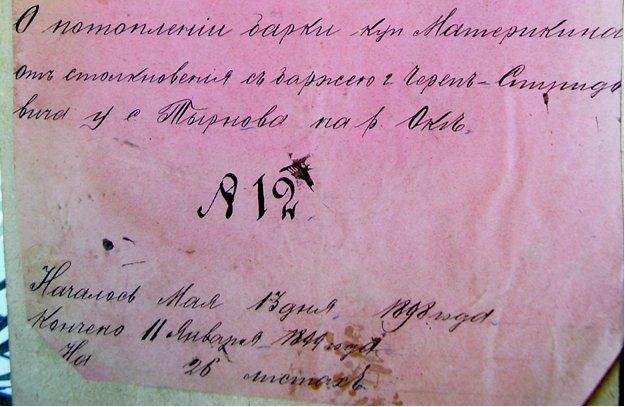 О потопленіи барки куп Материкина
отъ столкновенія съ баржею г Черепъ-Спирид
вича у с Тырнова на р. Окѣ.
№ 12
Началось Мая 13 дня 1898 года.
Кончено 11 Января 1899 года
На 26 листахъ